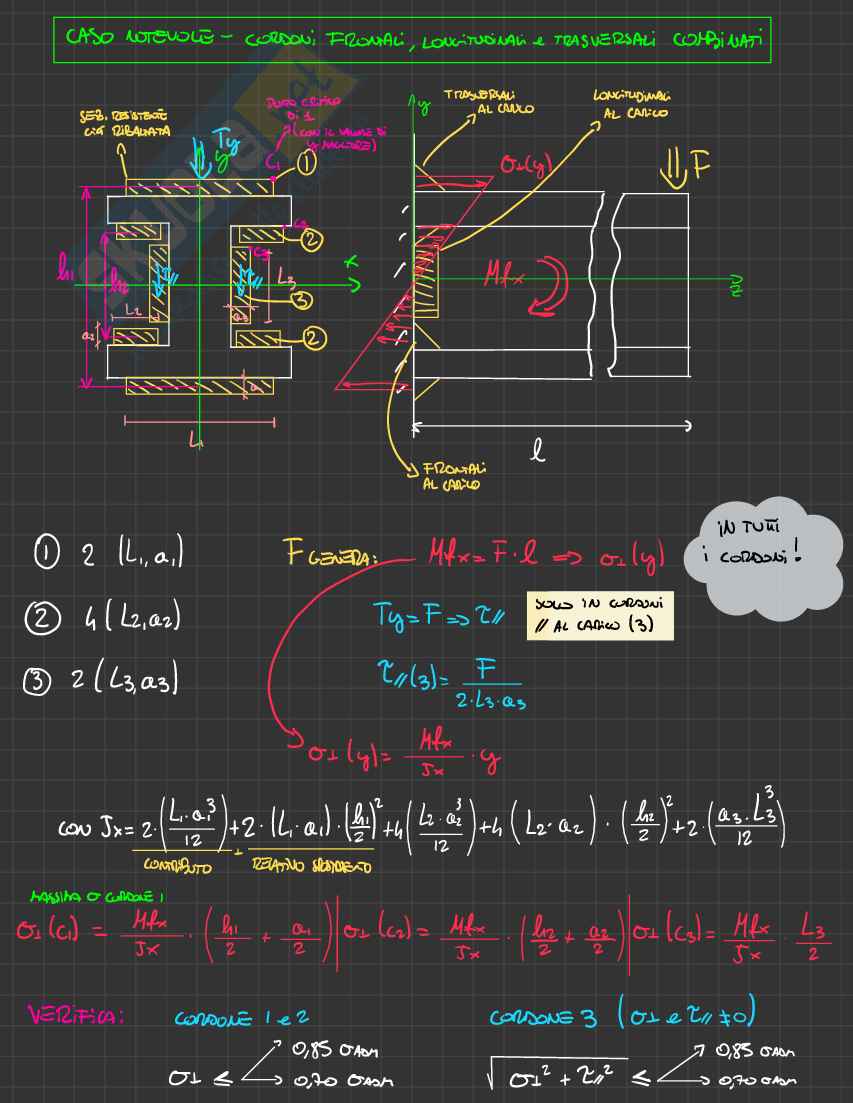 CASO NOTEVOLE - CORDONI FRONTALI, LONGITUDINALI e TRASVERSALI COMBINATI
SEZ. RESISTENTE
GIÀ RIBALTATA
Ty
y
PUNTO CRITICO
DI 1
(CON IL VALORE DI
y MAGGIORE)
C1
1
C2
2
C3
τ//
τ//
h1
h2
L2
a2
L3
3
a3
2
x
a1
L1
y
TRASVERSALI
AL CARICO
LONGITUDINALI
AL CARICO
σ⊥(y)
F
Mfx
z
l
FRONTALI
AL CARICO
SKUOLA.net
① 2 (L1, a1)
② 4 (L2, a2)
③ 2 (L3, a3)
F GENERA:
Mfx = F · l ⇒ σ⊥(y)
IN TUTTI
i CORDONI!
Ty = F ⇒ τ//
SOLO IN CORDONI
// AL CARICO (3)
τ//(3) = F / 2·L3·a3
σ⊥(y) = Mfx / Jx · y
CON Jx = 2·(L1·a1³/12) + 2·(L1·a1)·(h1/2)² + 4(L2·a2³/12) + 4(L2·a2)·(h2/2)² + 2·(a3·L3³/12)
CONTRIBUTO + RELATIVO SPOSTAMENTO
MASSIMA σ CORDONE 1
σ⊥(C1) = Mfx/Jx · (h1/2 + a1/2) | σ⊥(C2) = Mfx/Jx · (h2/2 + a2/2) | σ⊥(C3) = Mfx/Jx · L3/2
VERIFICA:
CORDONE 1 e 2
σ⊥ ≤
0,85 σADM
0,70 σADM
CORDONE 3 (σ⊥ e τ// ≠ 0)
√σ⊥² + τ//² ≤
0,85 σADM
0,70 σADM